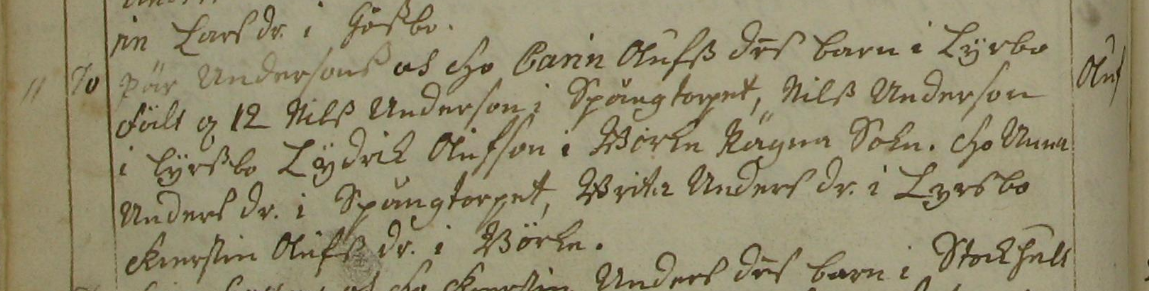 in Lars dr. i Gåßbo.
11 D:o Pär Andersons oh ho Carin Olufß drs barn i Lyrbo Oluf
född q 12 Nilß Anderson i Spångtorpet, Nilß Anderson
i Lyrßbo Lydrik Olufson i Börke Rägna Sokn. ho Anna
Anders dr. i Spångtorpet, Brita Anders dr. i Lyrsbo
Kierstin Olufß dr. i Börke.
oh ho Kierstin Anders drs barn i Stockhult